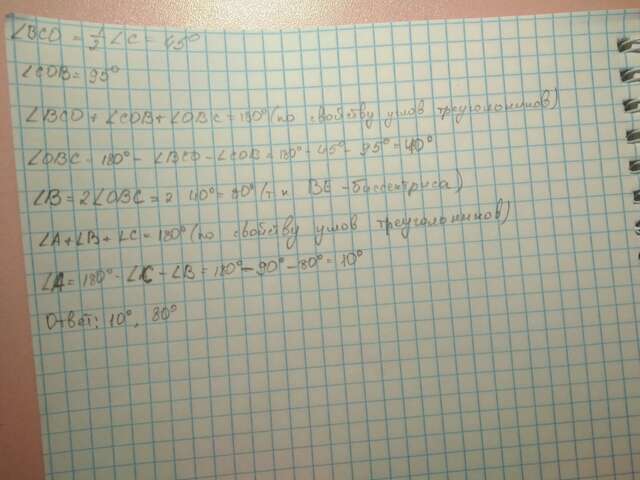 ∠BCO = 1/2 ∠C = 45°
∠COB = 95°
∠BCO + ∠COB + ∠OBC = 180° (по свойству углов треугольников)
∠OBC = 180° - ∠BCO - ∠COB = 180° - 45° - 95° = 40°
∠B = 2∠OBC = 2 · 40° = 80° (т.к BE - биссектриса)
∠A + ∠B + ∠C = 180° (по свойству углов треугольников)
∠A = 180° - ∠C - ∠B = 180° - 90° - 80° = 10°
Ответ: 10°, 80°